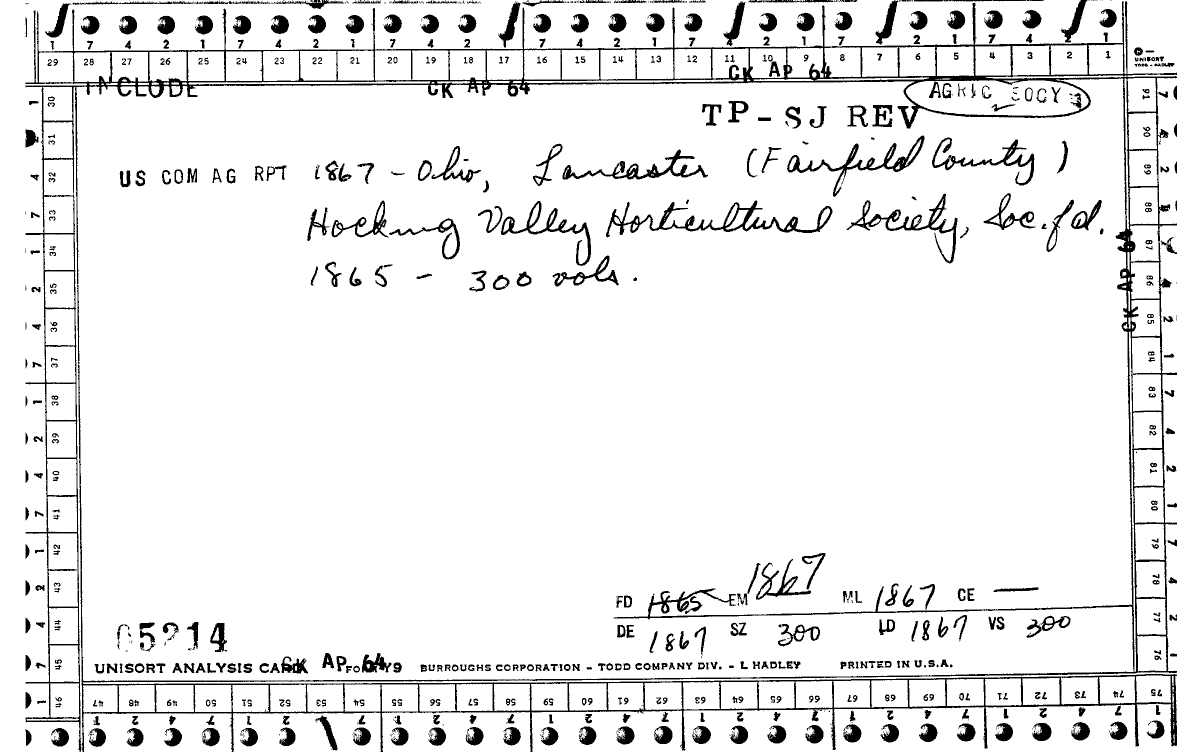 1 7 4 2 1 7 4 2 1 7 4 2 1 7 4 2 1 7 4 2 1 7 4 2 1 7 4 2 1
29 28 27 26 25 24 23 22 21 20 19 18 17 16 15 14 13 12 11 10 9 8 7 6 5 4 3 2 1
UNISORT
TODD - HADLEY
INCLUDE CK AP 64 CK AP 64 AGRIC SOCY
TP-SJ REV
US COM AG RPT 1867 - Ohio, Lancaster (Fairfield County)
Hocking Valley Horticultural Society, Soc. fd.
1865 - 300 vols.
CK AP 64
30 31 32 33 34 35 36 37 38 39 40 41 42 43 44 45 46
91 90 89 88 87 86 85 84 83 82 81 80 79 78 77 76 75
FD 1865 EM 1867 ML 1867 CE —
DE 1867 SZ 300 LD 1867 VS 300
05214
UNISORT ANALYSIS CARD CK AP 64 FORM Y9 BURROUGHS CORPORATION – TODD COMPANY DIV. – L HADLEY PRINTED IN U.S.A.
47 48 49 50 51 52 53 54 55 56 57 58 59 60 61 62 63 64 65 66 67 68 69 70 71 72 73 74